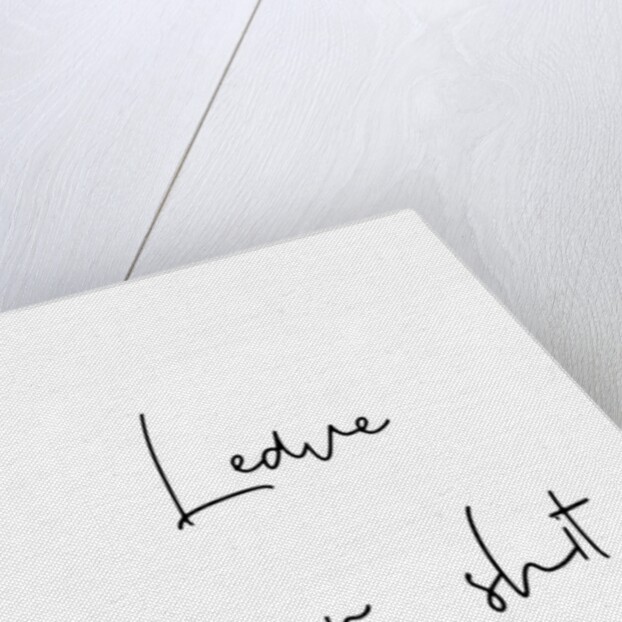 Leave
shit